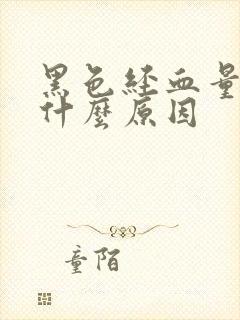 黑色經血量
什麼原因
童陌